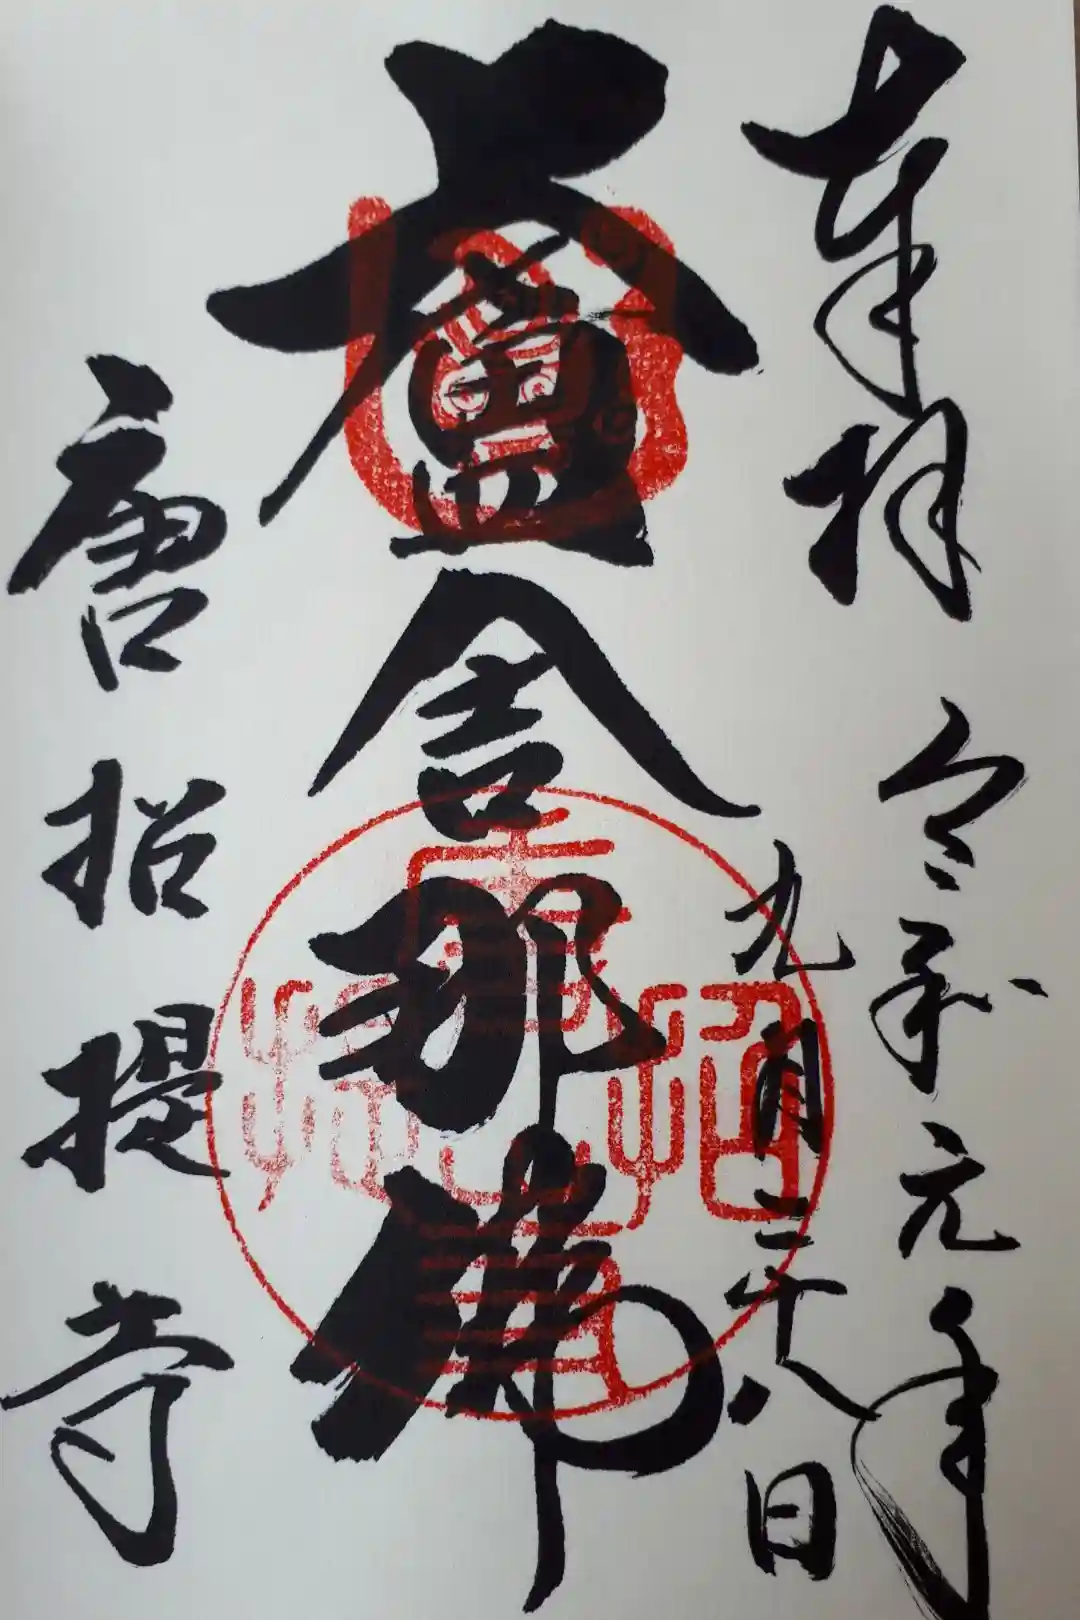 奉拝 令和元年
九月二十八日
盧舎那佛
唐招提寺